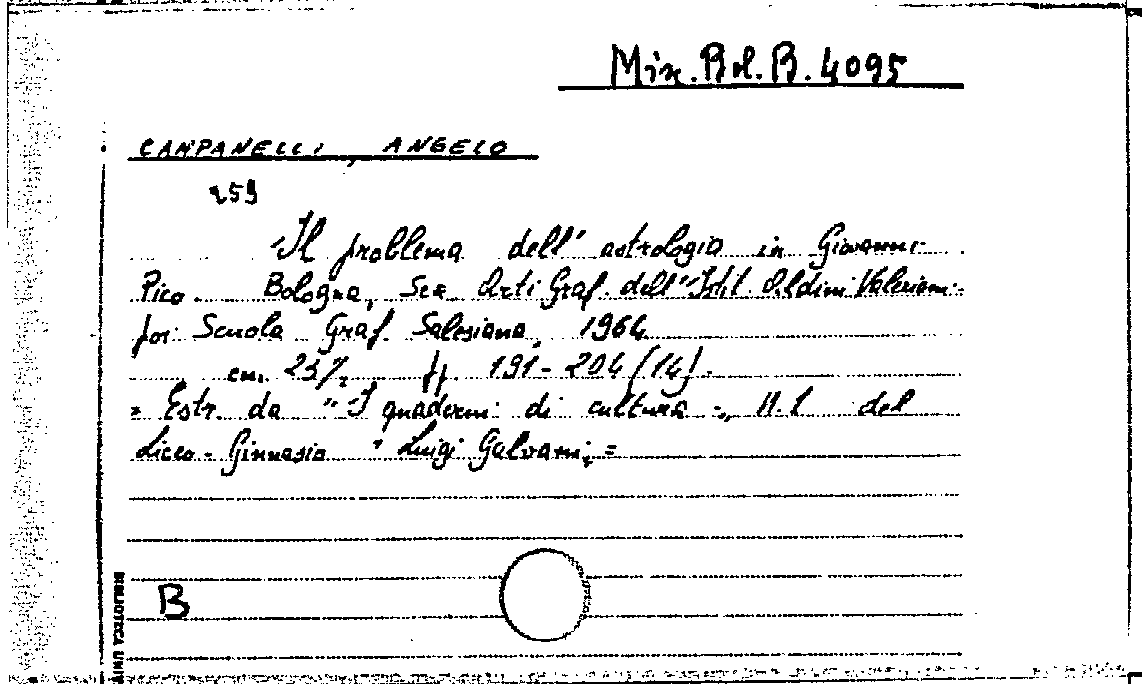 Mix. Bol. B. 4095
CAMPANELLI, ANGELO
259
"Il problema dell'astrologia in Giovanni
Pico. Bologna, Sez. Arti Graf. dell'"Istit. Aldini Valeriani"
for Scuola Graf. Salesiana, 1964
cm. 23½ ff. 191-204 (14).
= Estr. da "I quaderni di cultura", n. 1 del
Liceo-Ginnasio "Luigi Galvani" =
B
BIBLIOTECA UNIV